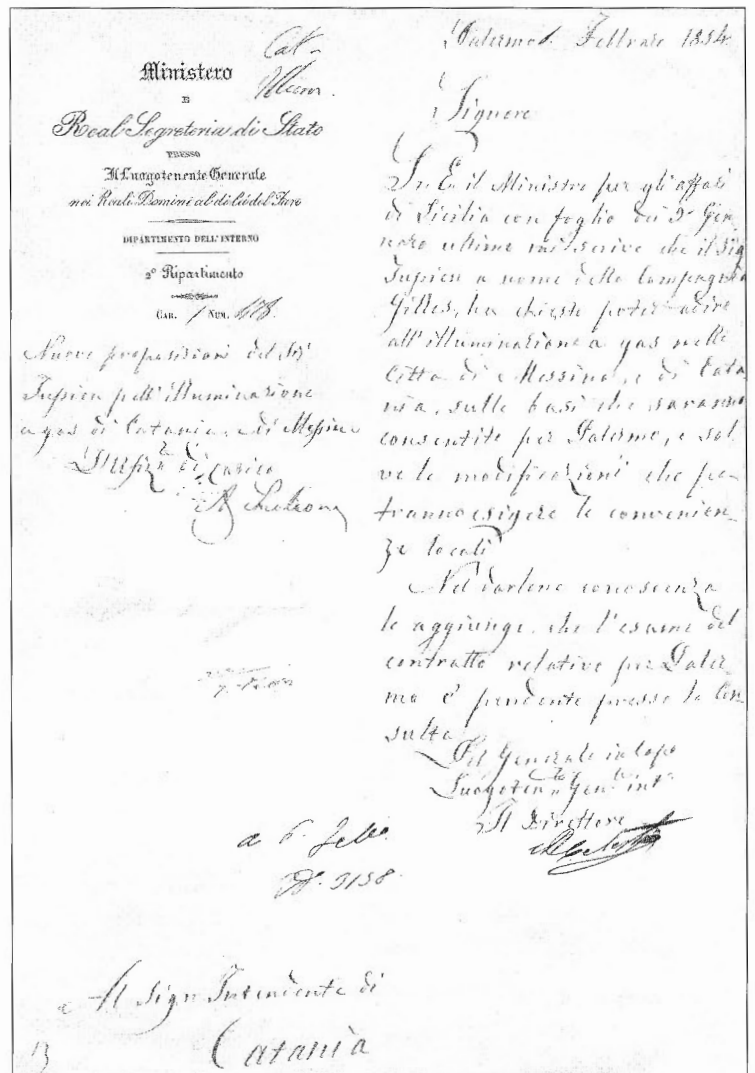 Cat.
Ministero
E
Real Segreteria di Stato
PRESSO
Il Luogotenente Generale
nei Reali Domini al di là del Faro
DIPARTIMENTO DELL'INTERNO
2º Ripartimento
CAR. 1 NUM. 478.
Nuove proposizioni del Sigr
Tupien pell'illuminazione
a gas di Catania, e di Messina
L'Uffizle di carico
Palermo Febbraro 1854
Signore
S. E. il Ministro per gli affari
di Sicilia con foglio dei 3 Gen-
naro ultimo mi scrive che il Sig
Tupien a nome della Compagnia
Gilles, ha chiesto poter adire
all'illuminazione a gas nelle
Città di Messina, e di Cata
nia, sulle basi che saranno
consentite per Palermo, e sal
ve le modificazioni che po-
tranno esigere le convenien
ze locali
Nel darlene conoscenza
le aggiungo, che l'esame del
contratto relativo per Paler
mo è pendente presso la Con
sulta.
Pel Generale in Capo
Luogotente Genle intno
Il Direttore
a 6. Febbo
Nº. 3158.
Al Sign Intendente di
Catania
13